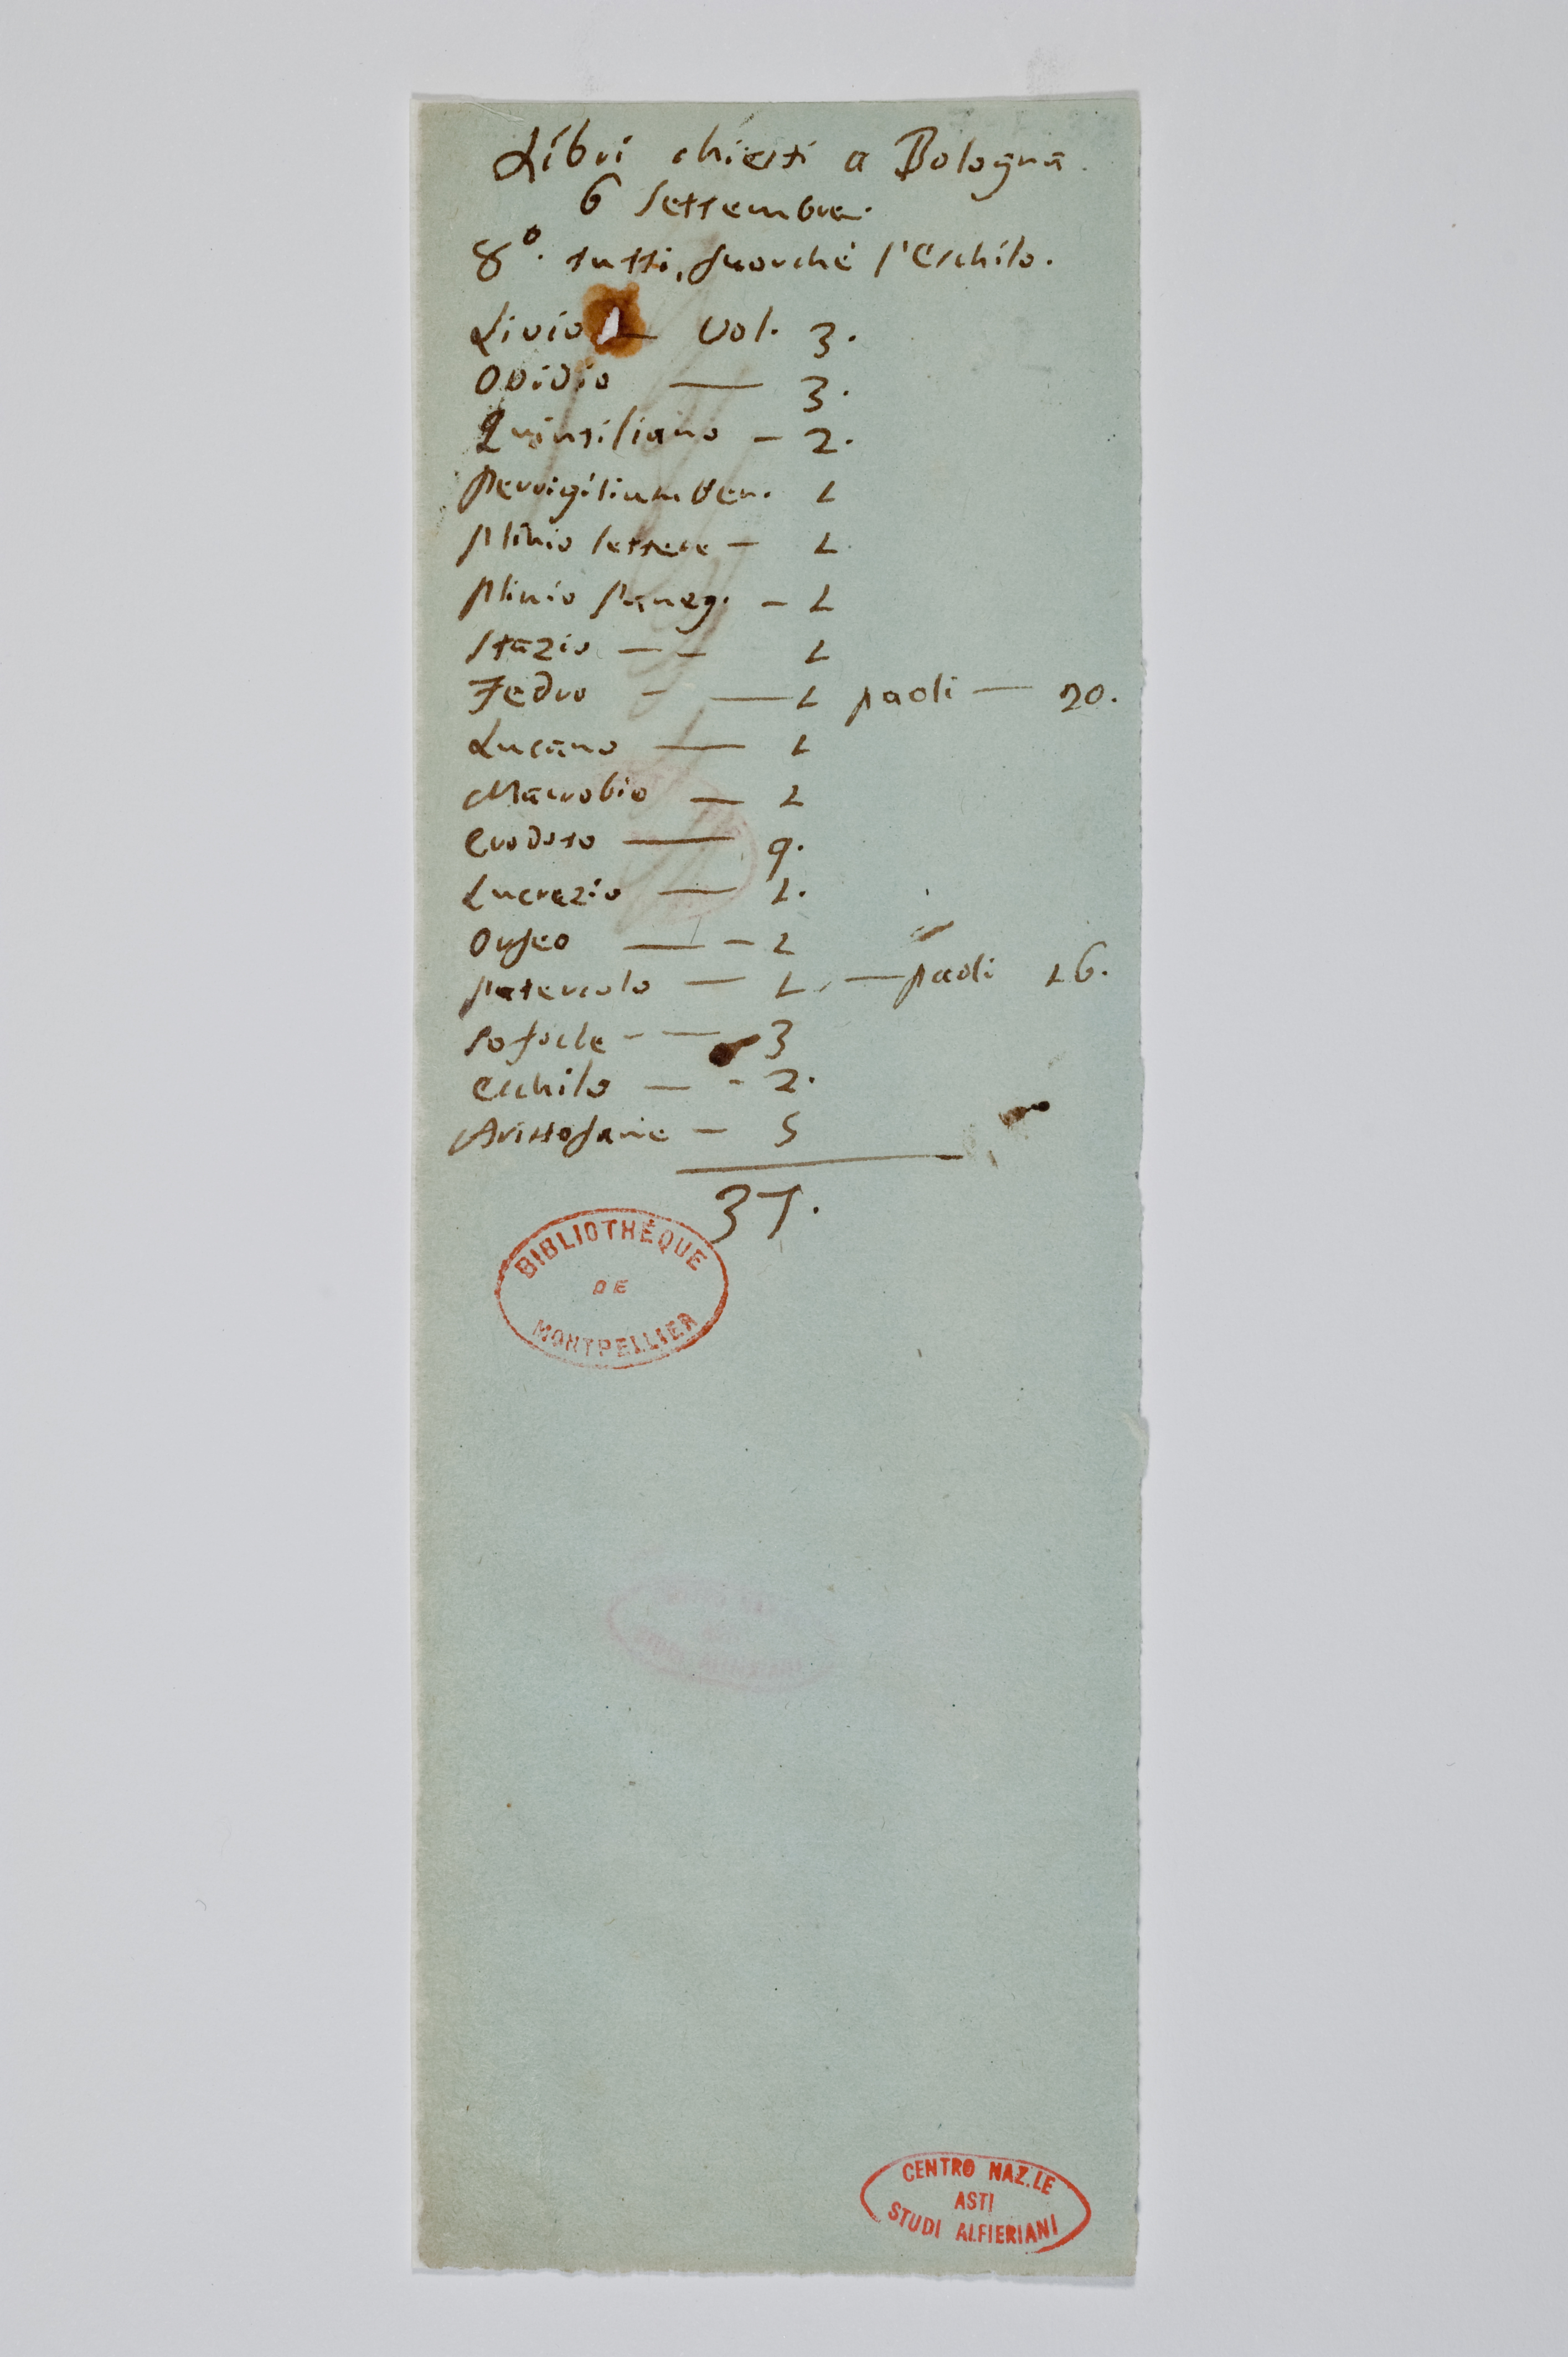 Libri chiesti a Bologna.
6 Settembre.
8º. tutti, fuorché l'Eschilo.
Livio — Vol. 3.
Ovidio — 3.
Quintiliano — 2.
Pervigilium Ven. 1
Plinio lettere — 1.
Plinio Paneg. — 1
Stazio — — 1
Fedro - — 1 paoli — 20.
Lucano — 1
Macrobio — 1
Erodoto — 9.
Lucrezio — 1.
Orfeo — - 1
Patercolo — 1. — paoli 16.
Sofocle - — 3
Eschilo — - 2.
Aristofane — 5
37.
BIBLIOTHÈQUE
DE
MONTPELLIER
CENTRO NAZ.LE
ASTI
STUDI ALFIERIANI